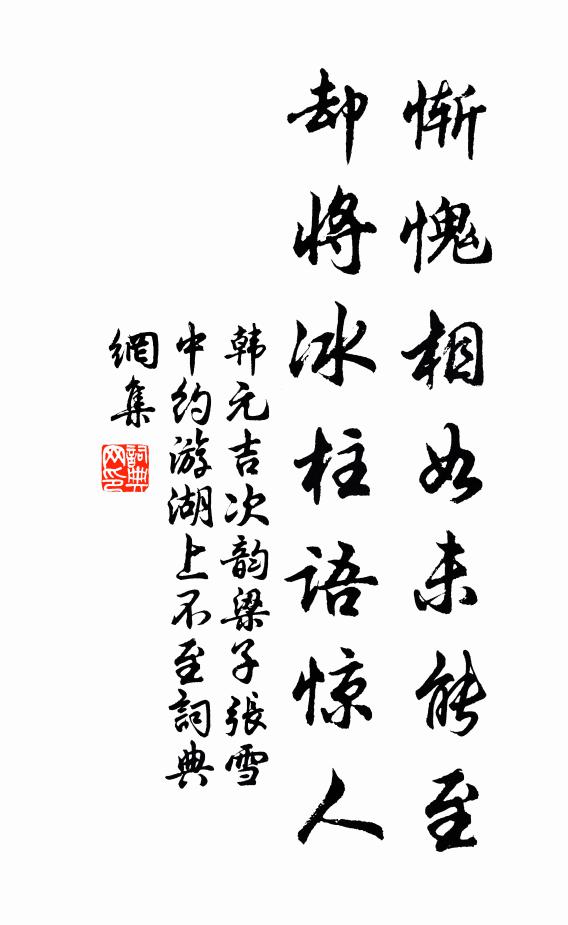 惭愧相如未能至
却将冰柱语惊人
韩元吉次韵梁子張雪
中约游湖上不至詞典
網集
詞典
网印